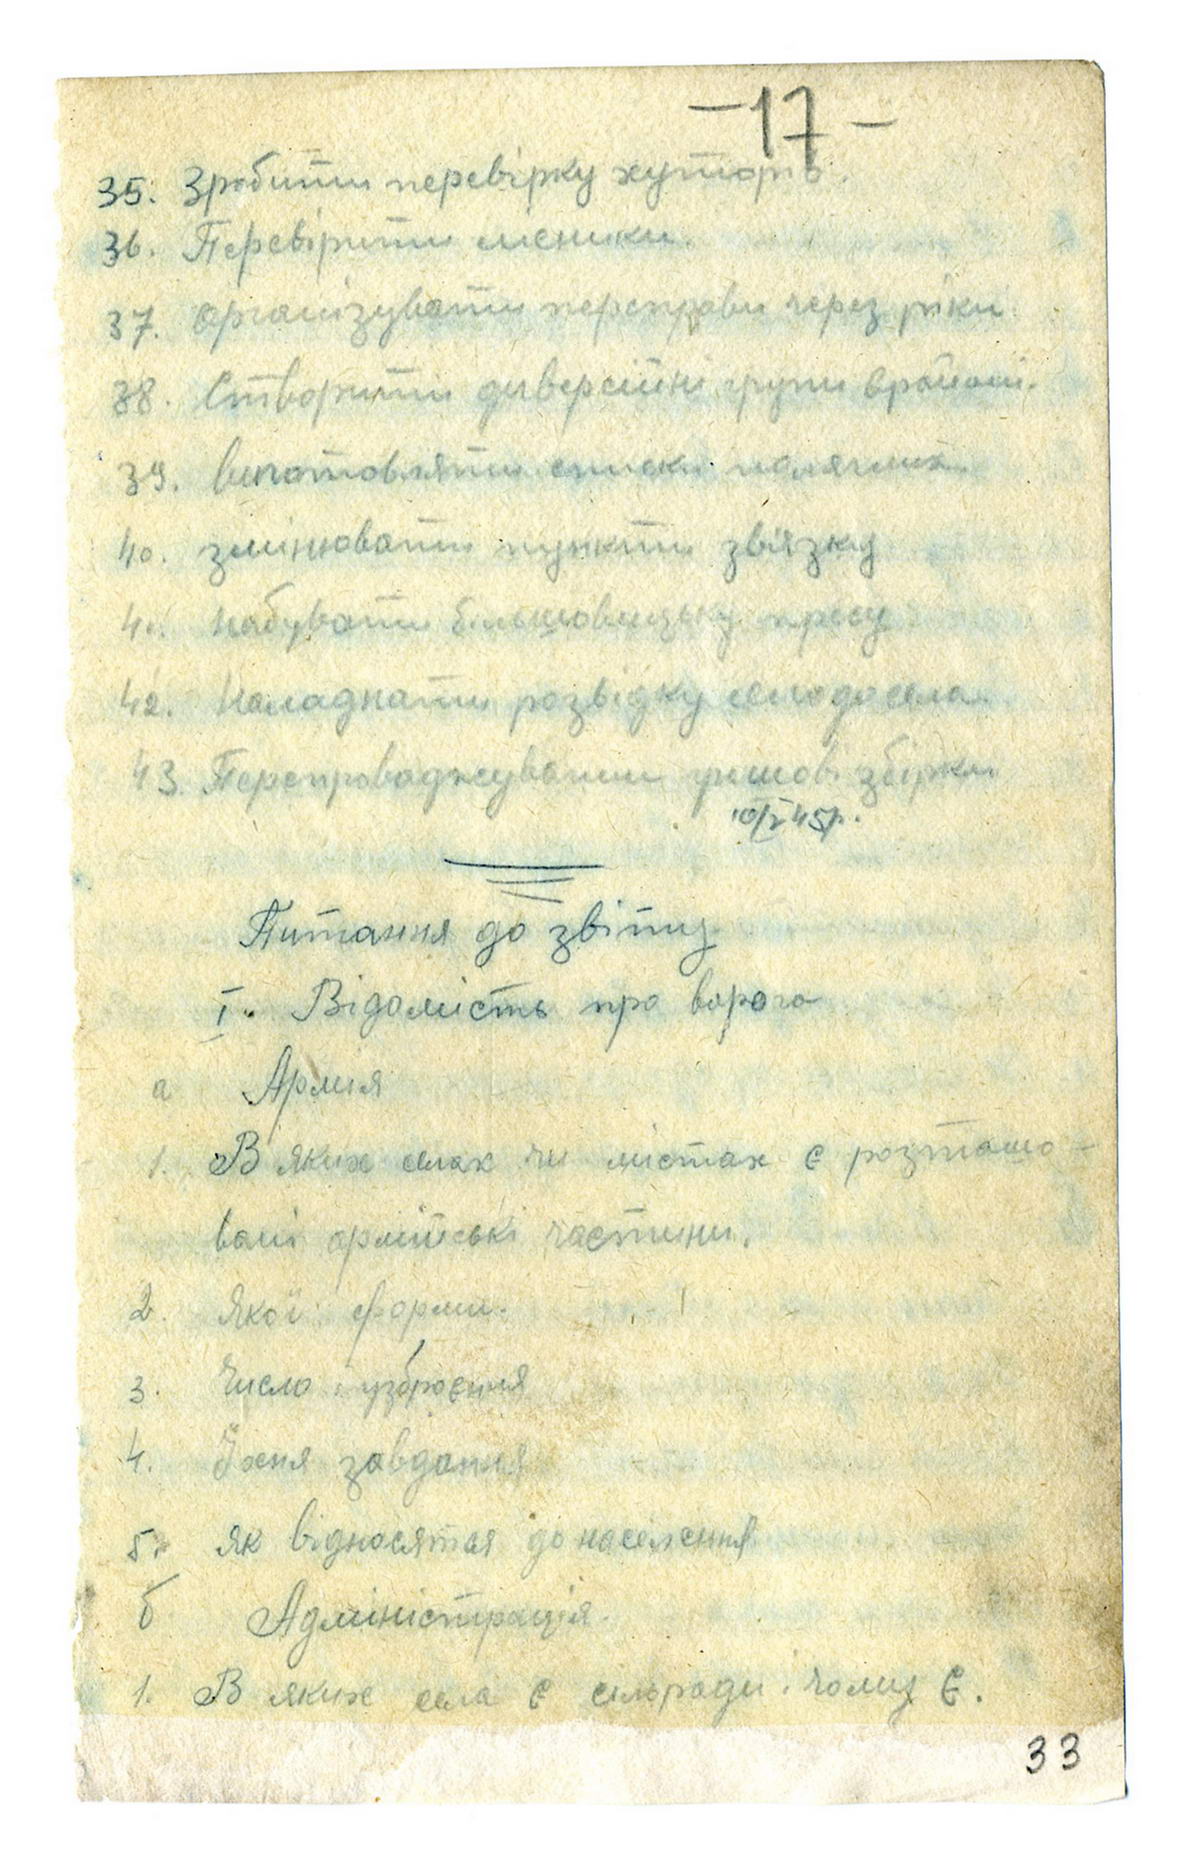 -17-
35. Зробити перевірку хуторів.
36. Перевірити
37. Організувати переправи через ріки
38. Створити диверсійні групи в районі.
39. виготовляти списки полеглих.
40. змінювати пункти звязку
41. Набувати більшовицьку пресу
42. Наладнати розвідку село до села.
43. Перепроваджувати грошові збірки
10/I 45р.
Питання до звіту
I. Відомість про ворога
а Армія
1. В яких селах чи містах є розташо-
вані армійські частини.
2. Якої форми.
3. Число і узброєння
4. Їхня завдання
5. Як відносятся до населення
б Адміністрація.
1. В яких села є сільради і чому є.
33